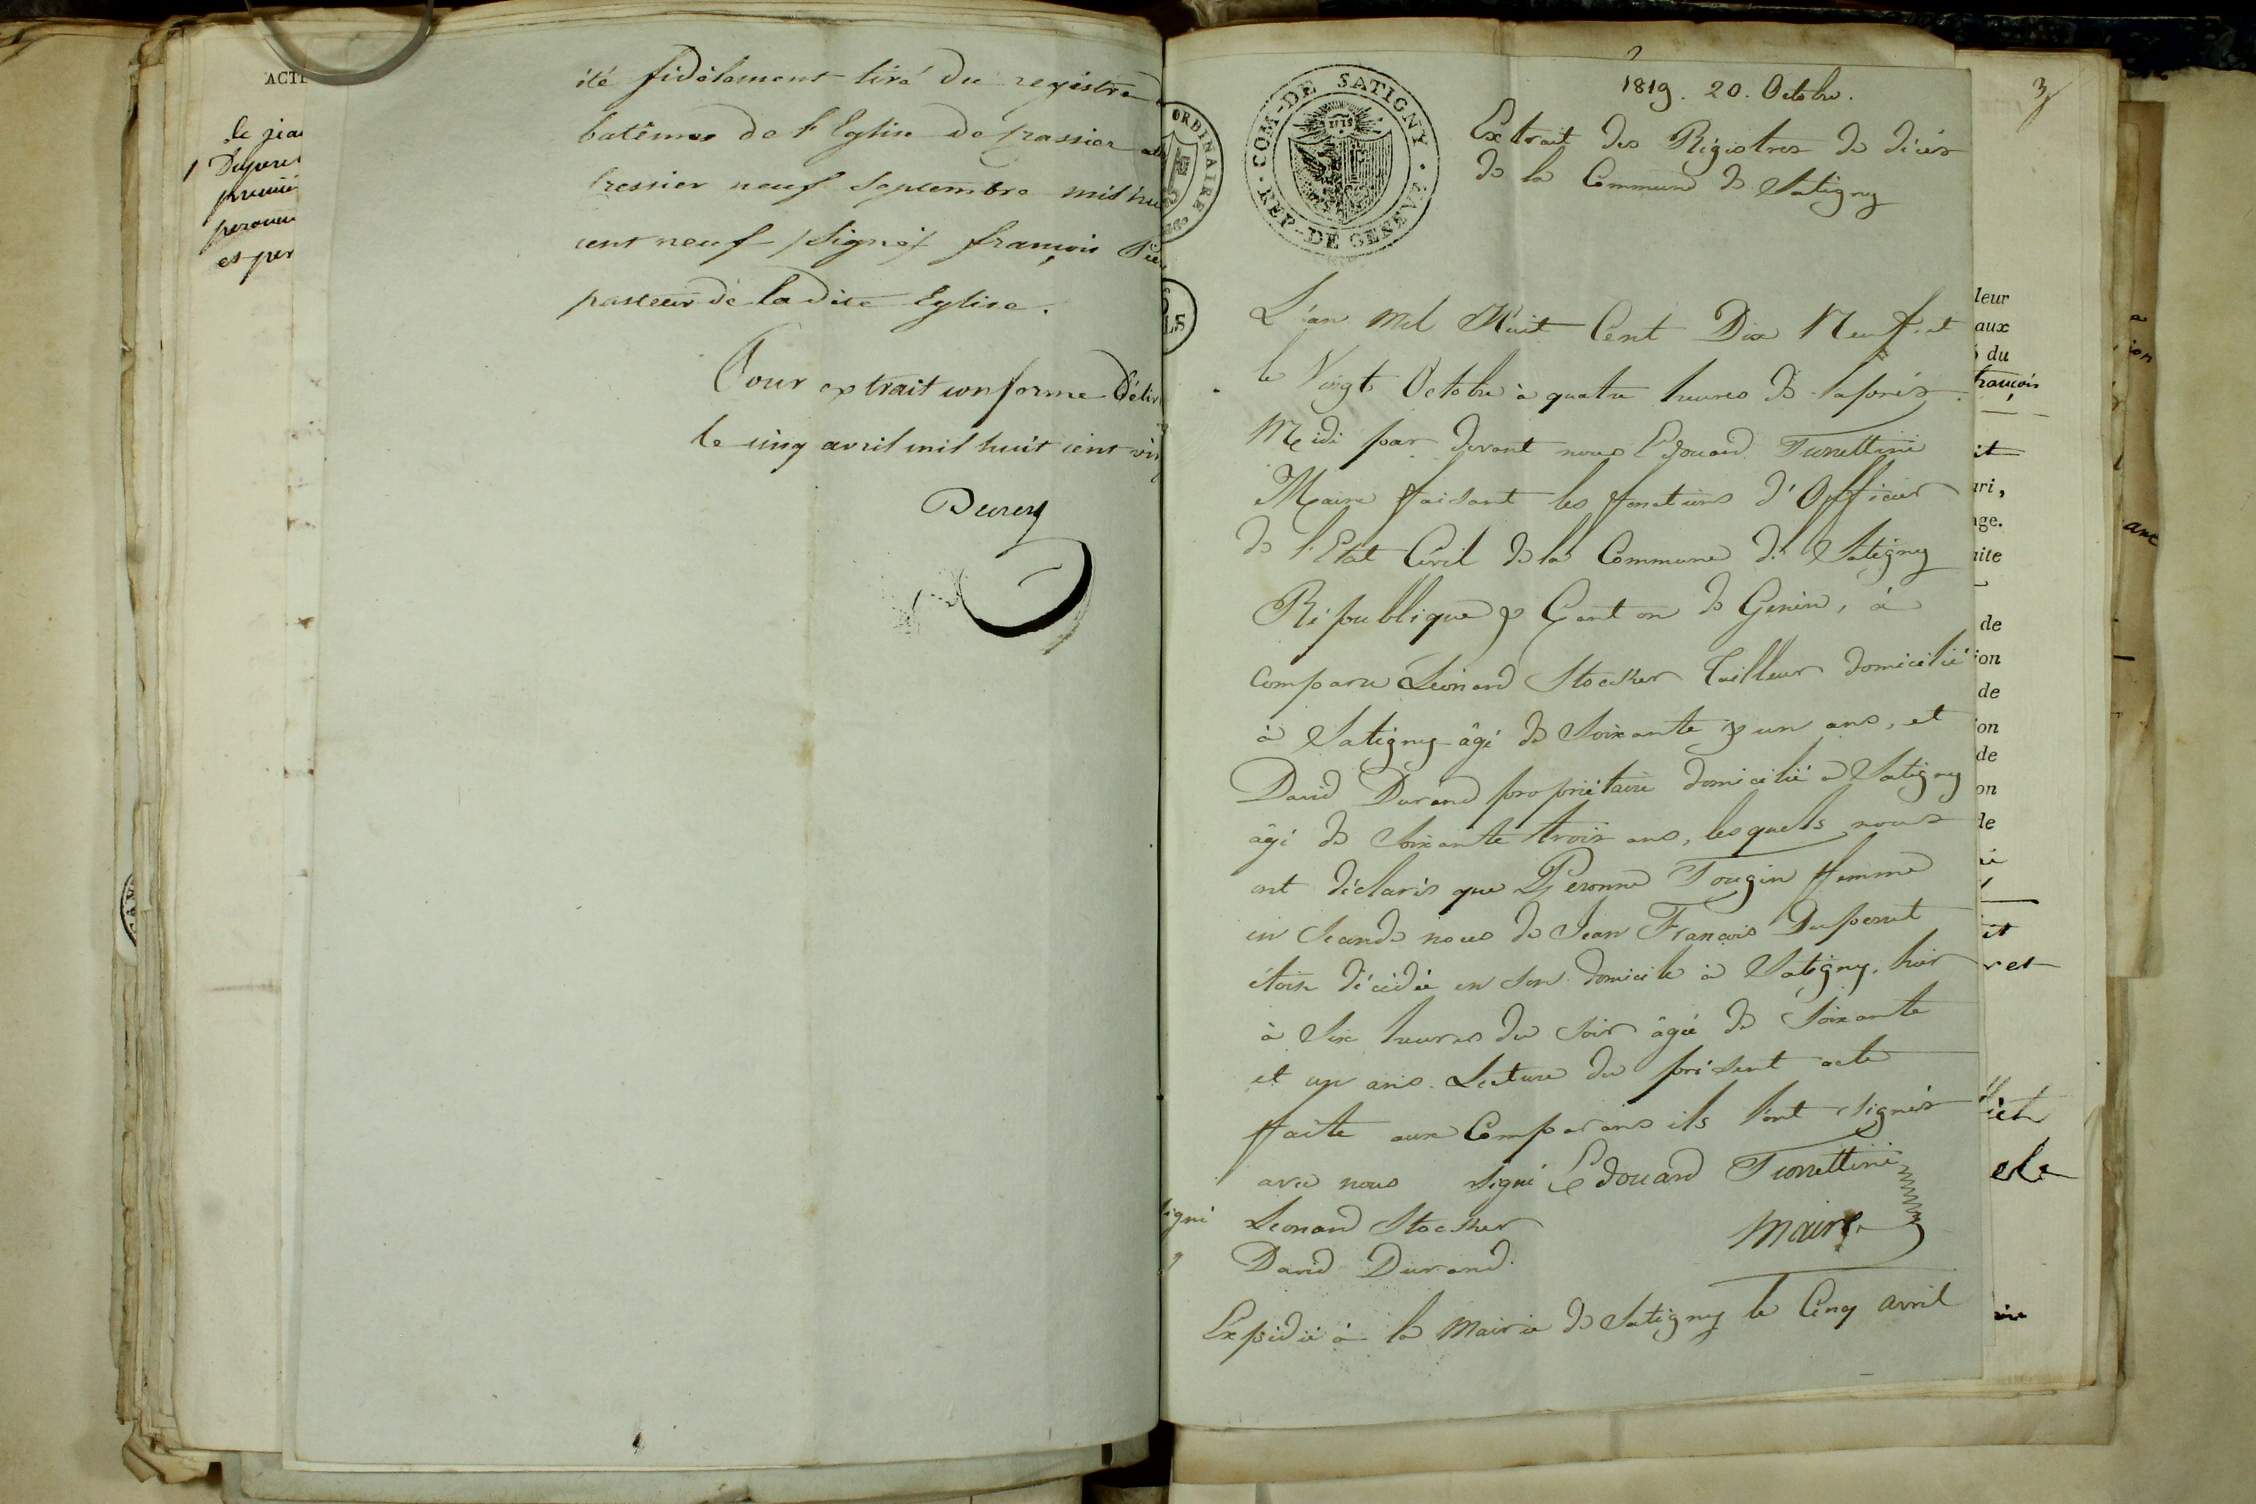 ACTE
le jean
Duperret
premier
peronne
et per
été fidèlement tiré du registre
batêmes de l'Eglise de Crassier
Cressier neuf Septembre mil hu
cent neuf /signé/ françois
pasteur de la dite Eglise.
Pour extrait conforme Déliv
le cinq avril mil huit cent vin
Durey
ORDINAIRE
COM. DE SATIGNY. REP. DE GENEVE.
3
1819. 20. Octobre.
Extrait des Régistres de décès
de la Commune de Satigny
L'an Mil Huit Cent Dix Neuf et
le Vingt Octobre à quatre heures de l'après
Midi par devant nous Edouard Turrettini
Maire faisant les fonctions d'Officier
de l'Etat Civil de la Commune de Satigny
République & Canton de Genève, à
Comparu Léonard Stocker Tailleur domicilié
à Satigny âgé de Soixante & un ans, et
David Durand propriétaire domicilié à Satigny
âgé de Soixante trois ans, lesquels nous
ont déclarés que Peronne Tougin femme
en Seconde noces de Jean François Duperret
étoit décédée en son domicile à Satigny, hier
à Six heures du Soir âgée de Soixante
et un ans. Lecture du présent acte
faite aux Comparans ils l'ont signés
avec nous signé Edouard Turrettini
Leonard Stocker Maire
David Durand.
Expédié à la Mairie de Satigny le Cinq avril
igné
leur
aux
du
françois
it
ari,
age.
uite
de
ion
de
ion
de
on
de
it
ret
ele